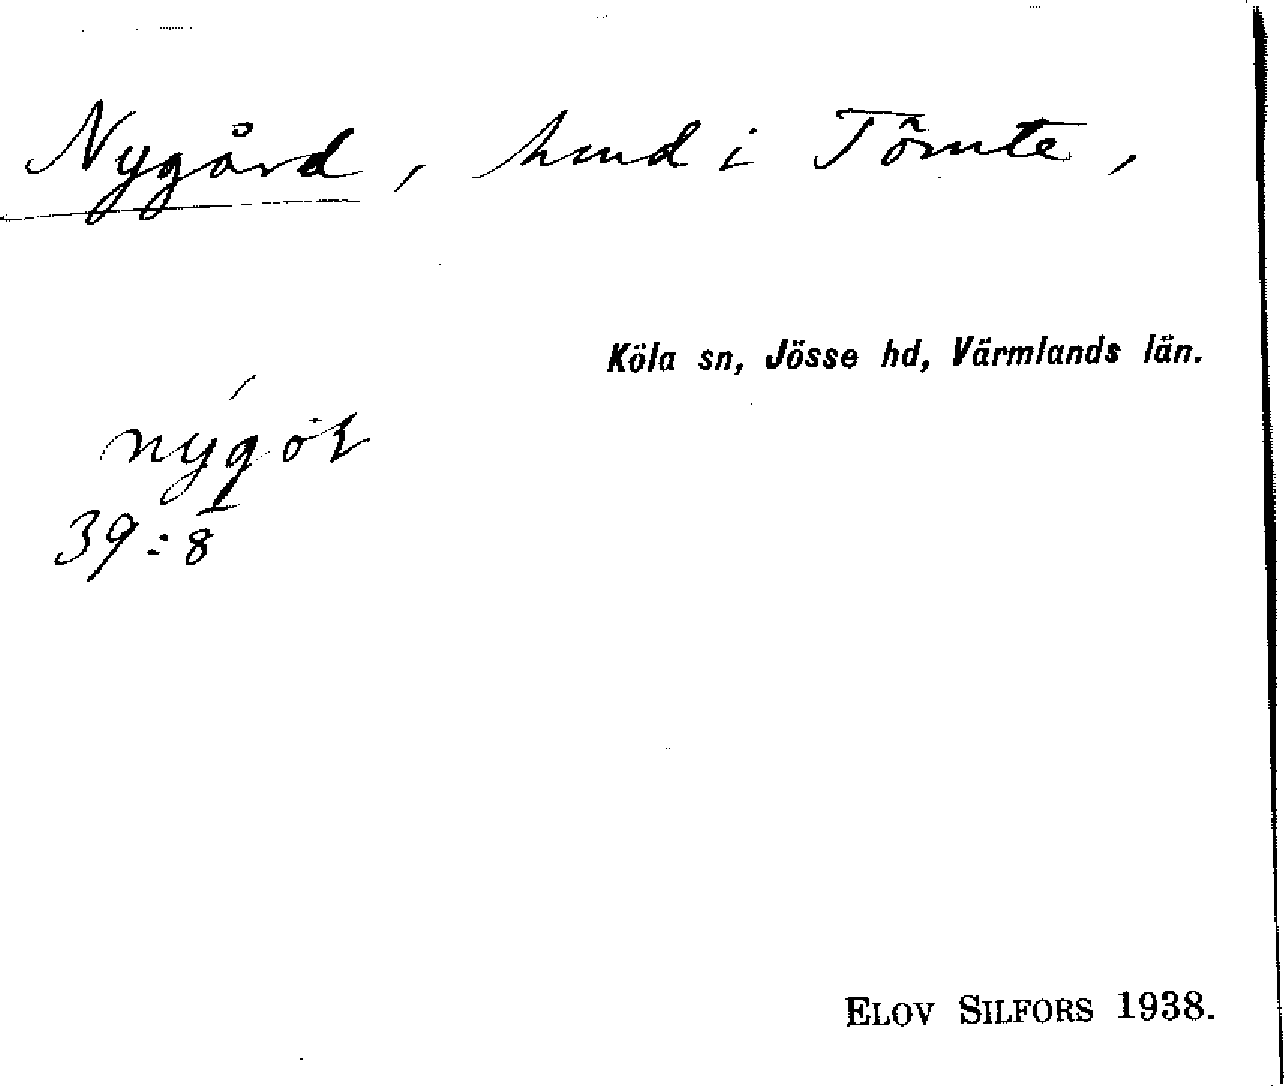 Nygård, hmd i Tömte,
Köla sn, Jösse hd, Värmlands län.
39:8
ELOV SILFORS 1938.